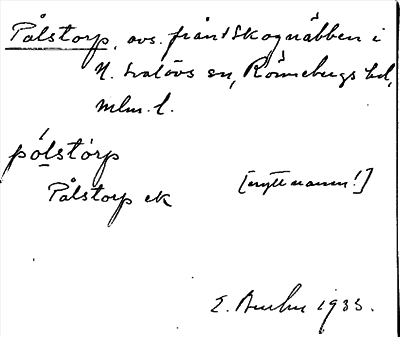 Pålstorp, avs. från Skognäbben i
N. Svalövs sn, Rönnebergs hd,
Mlm. l.
pólstòrp
Pålstorp ek [nytt namn!]
E. 1933.